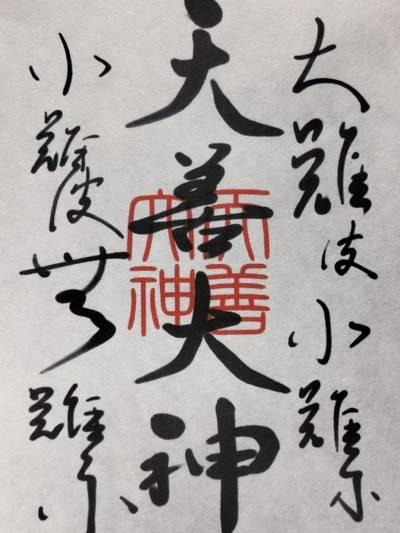 大難皮小難尓
天善大神
小難波無難
天善
大神